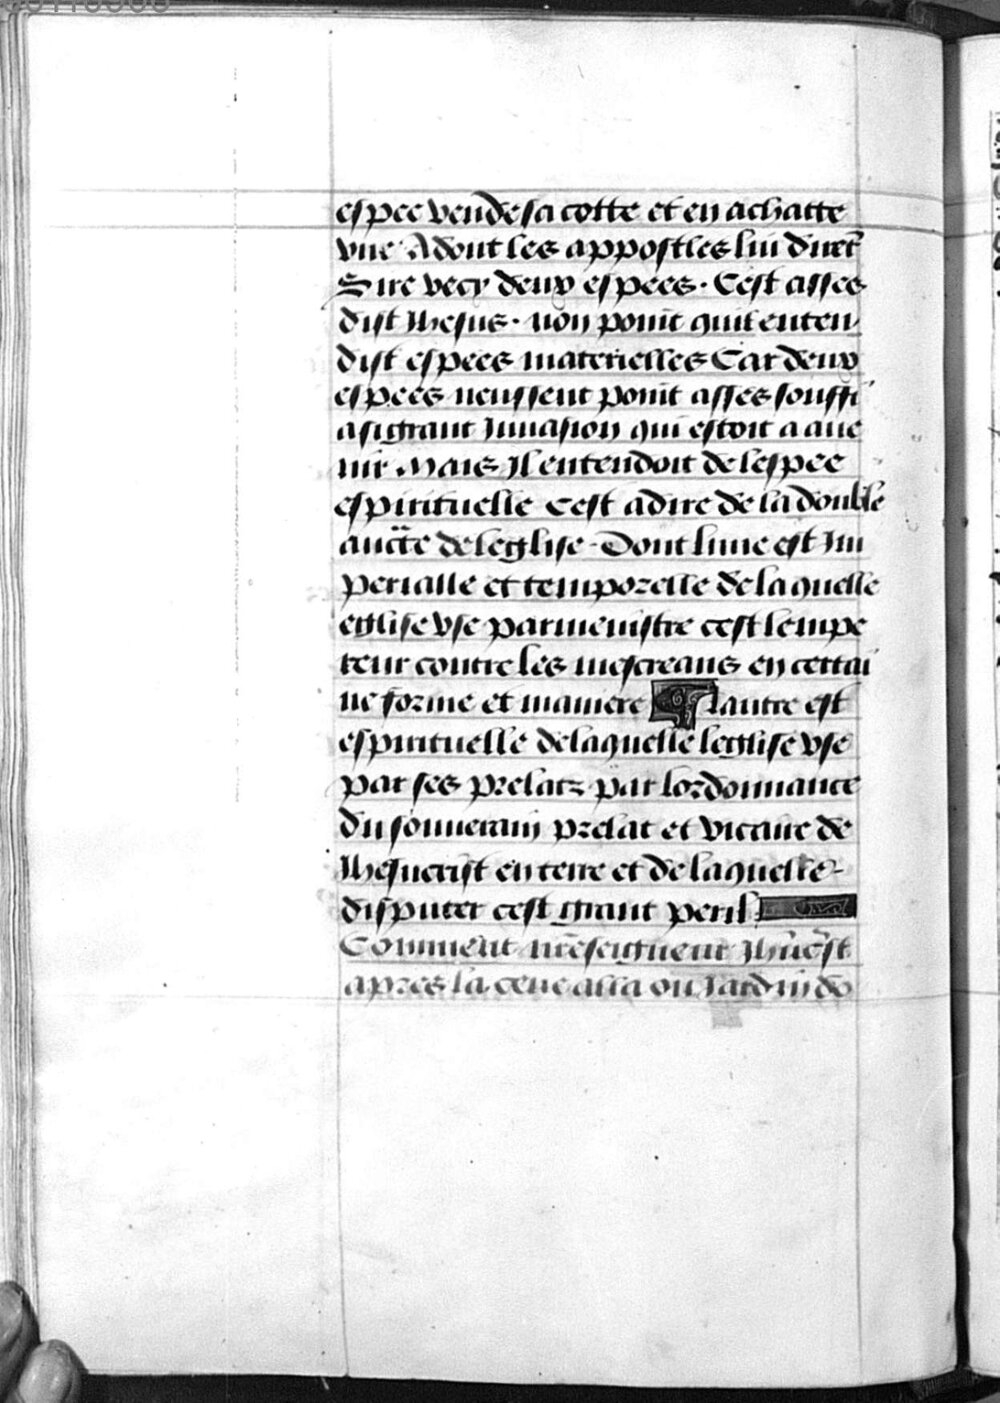 espee vende sa cotte et en achatte
vne Adont les appostles lui dirēt
Sire vecy deux espees. Cest asses
dist Ihesus. non point quil enten
dist espees materielles Car deux
espees neussent point asses souffi
a si grant Inuasion qui estoit a aue
nir Mais Il entendoit de lespee
espirituelle cest adire de la double
auctē de leglise. Dont lune est Im
perialle et temporelle de la quelle
eglise vse par menistre cest lempe
reur contre les mescreans en certai
ne forme et maniere lautre est
espirituelle de laquelle leglise vse
par ses prelatz par lordonnance
du souuerain prelat et vicaire de
Ihesucrist en terre et de laquelle
disputer cest grant peril
Comment nrē seigneur Ihūcst
apres la cene alla ou Iardin do